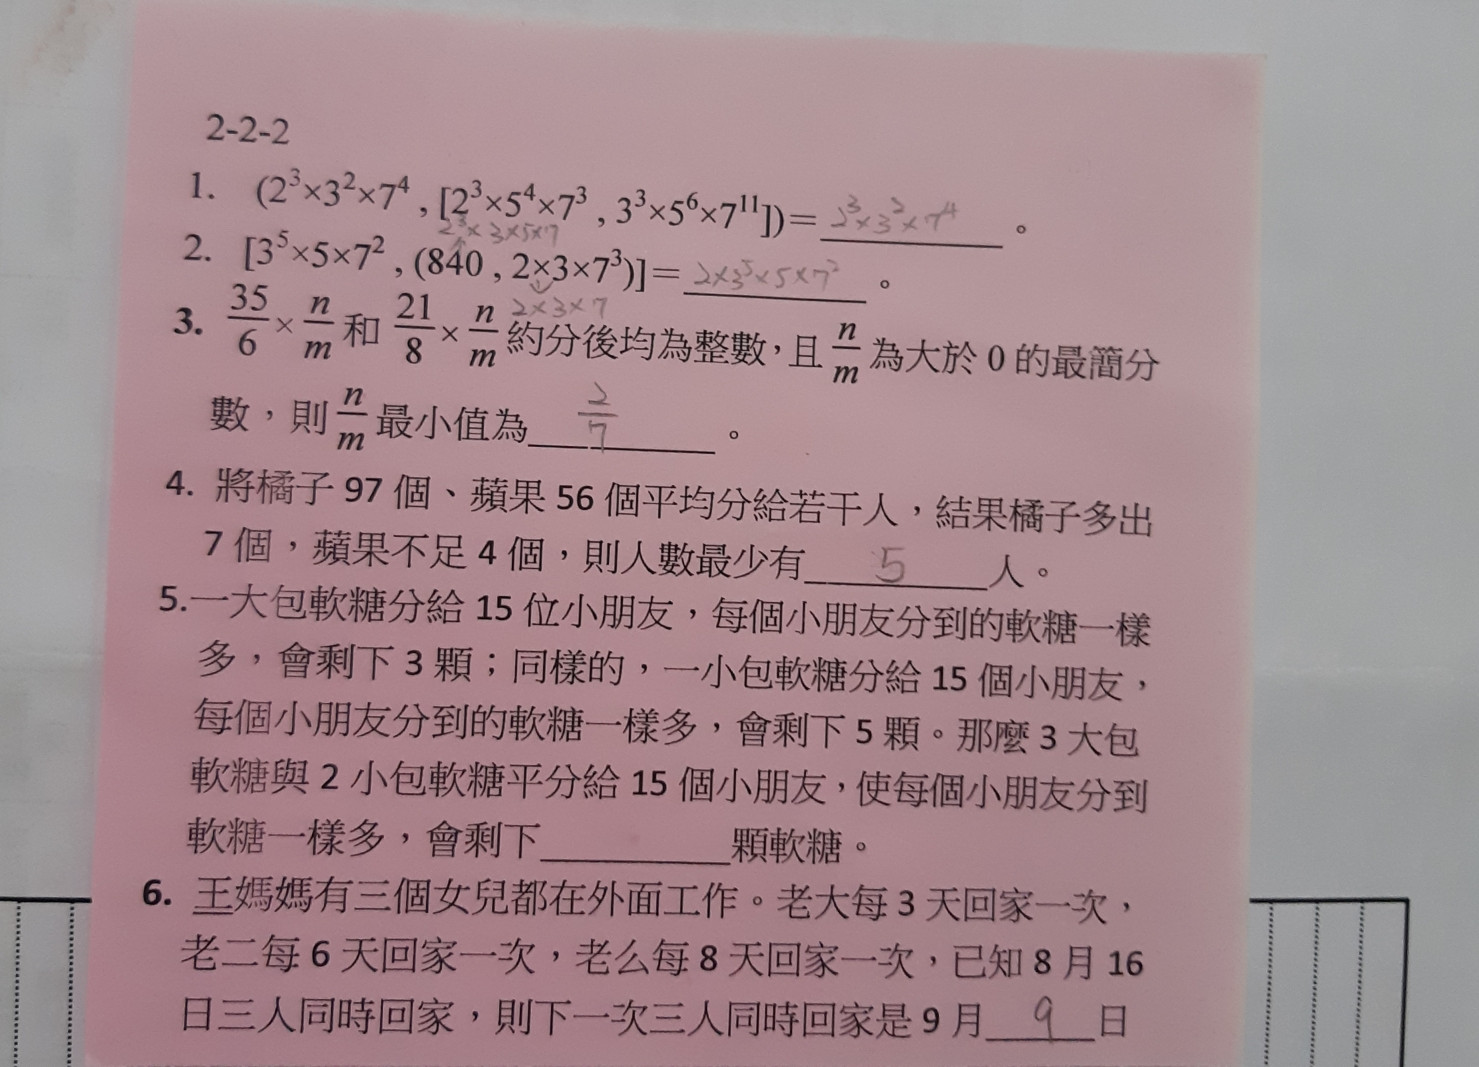 2-2-2
1. (2³×3²×7⁴ , [2³×5⁴×7³ , 3³×5⁶×7¹¹])= 2³×3²×7⁴ 。
2³×3×5×7
2. [3⁵×5×7² , (840 , 2×3×7³)]= 2×3⁵×5×7² 。
2×3×7
3. 35/6 × n/m 和 21/8 × n/m 約分後均為整數,且 n/m 為大於 0 的最簡分
數,則 n/m 最小值為 2/7 。
4. 將橘子 97 個、蘋果 56 個平均分給若干人,結果橘子多出
7 個,蘋果不足 4 個,則人數最少有 5 人。
5.一大包軟糖分給 15 位小朋友,每個小朋友分到的軟糖一樣
多,會剩下 3 顆;同樣的,一小包軟糖分給 15 個小朋友,
每個小朋友分到的軟糖一樣多,會剩下 5 顆。那麼 3 大包
軟糖與 2 小包軟糖平分給 15 個小朋友,使每個小朋友分到
軟糖一樣多,會剩下________顆軟糖。
6. 王媽媽有三個女兒都在外面工作。老大每 3 天回家一次,
老二每 6 天回家一次,老么每 8 天回家一次,已知 8 月 16
日三人同時回家,則下一次三人同時回家是 9 月 9 日